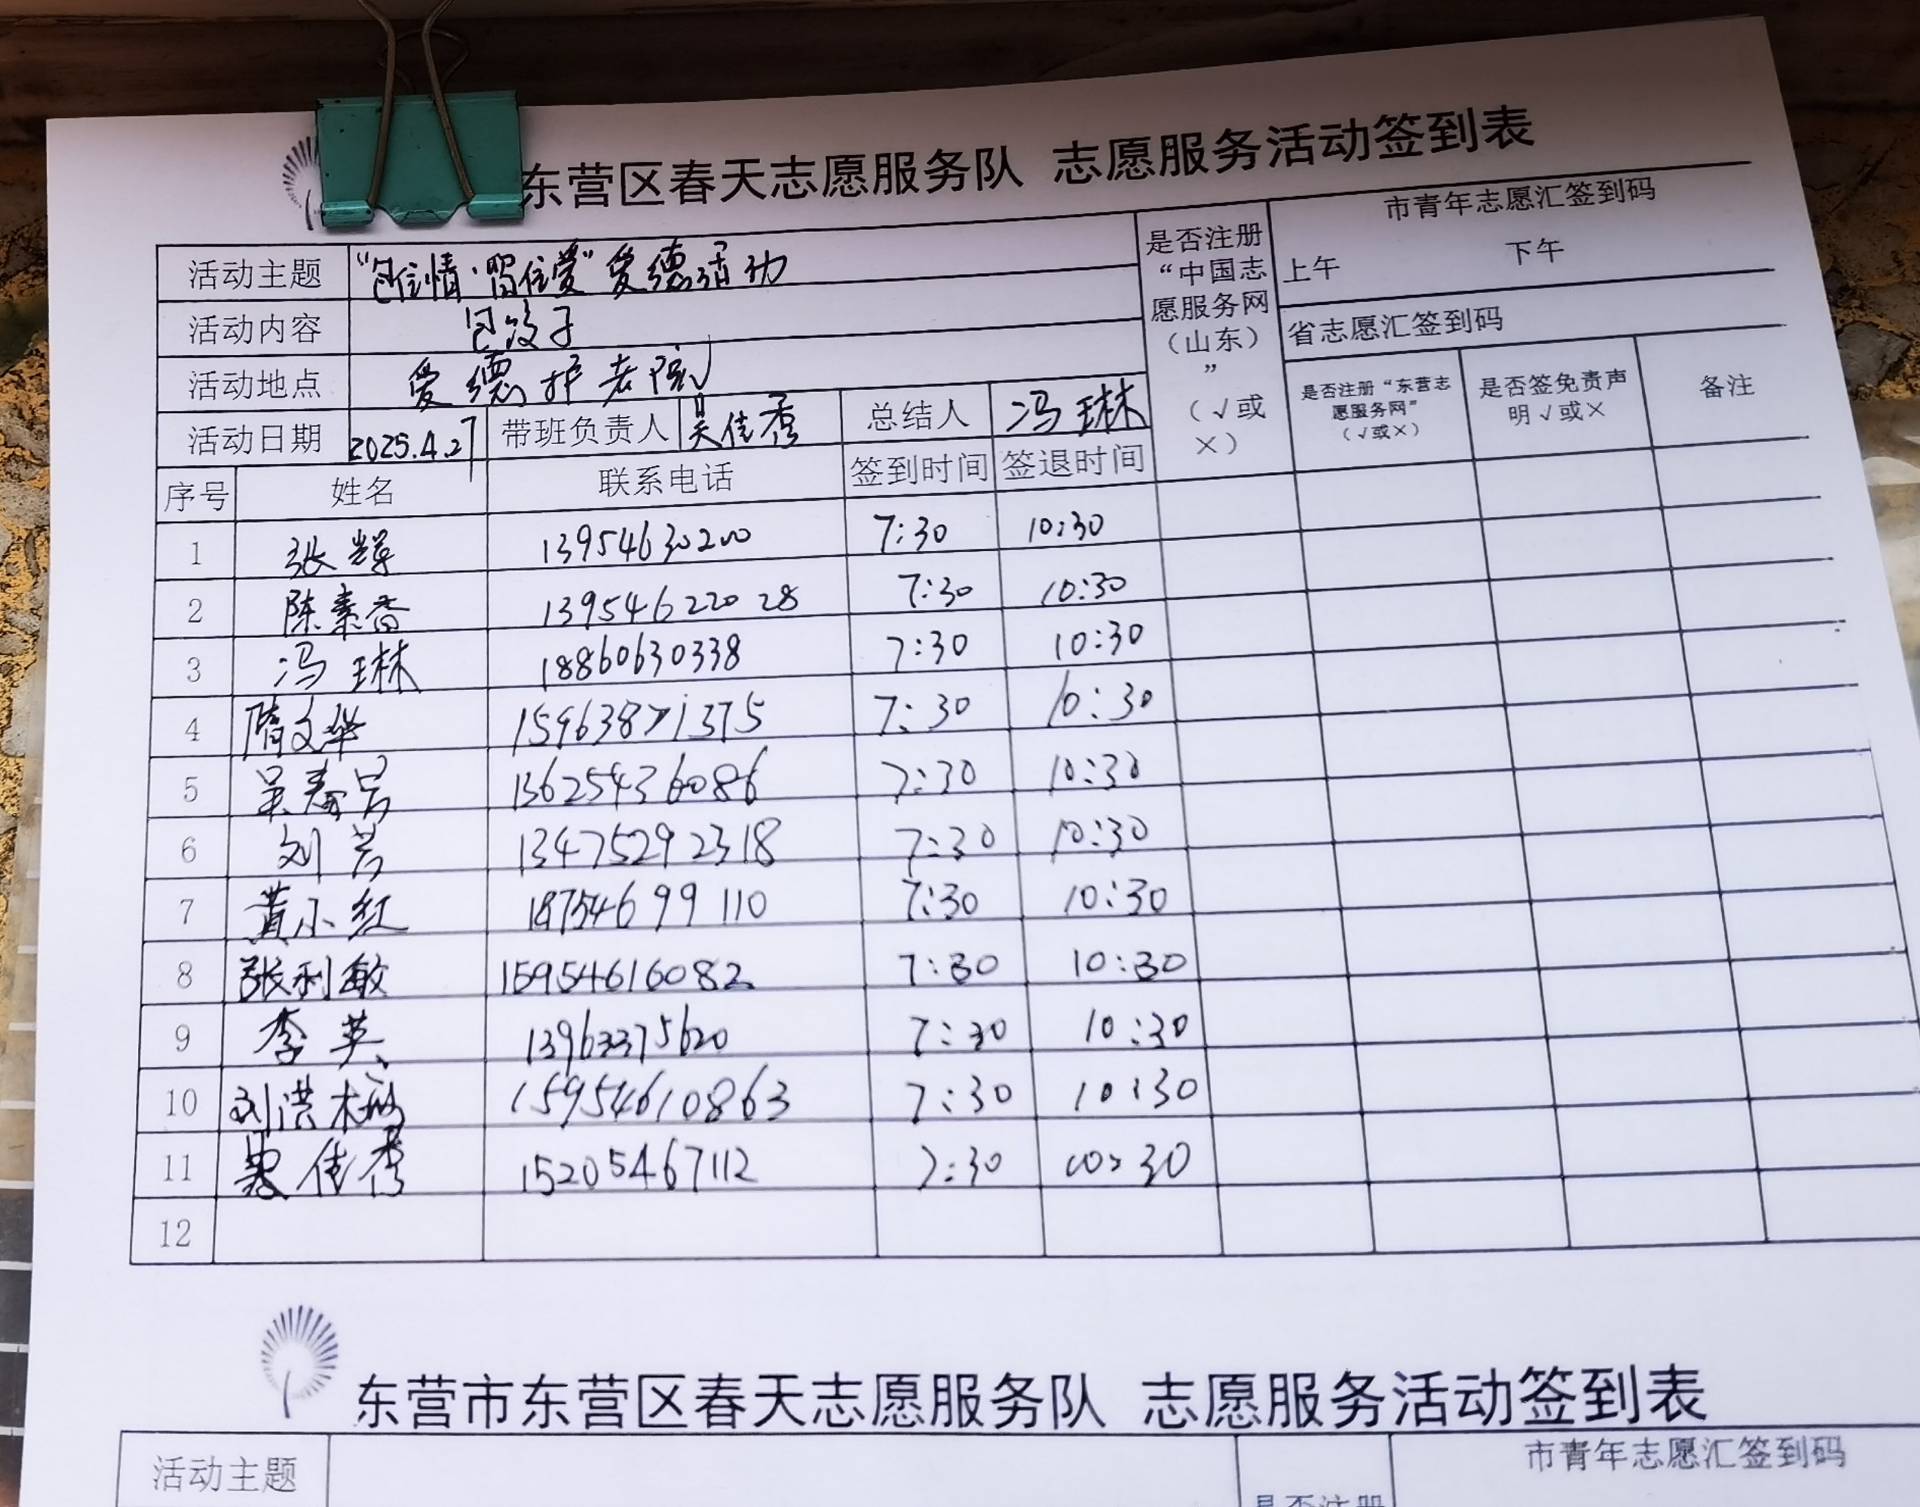 东营区春天志愿服务队 志愿服务活动签到表
活动主题 “包住情·留住爱”爱德活动 是否注册“中国志愿服务网（山东）”（√或×） 市青年志愿汇签到码
上午 下午
活动内容 包饺子 省志愿汇签到码
活动地点 爱德护老院 是否注册“东营志愿服务网”（√或×） 是否签免责声明√或× 备注
活动日期 2025.4.27 带班负责人 吴佳秀 总结人 冯琳
序号 姓名 联系电话 签到时间 签退时间
1 张辉 13954630200 7:30 10:30
2 陈素香 13954622028 7:30 10:30
3 冯琳 18860630338 7:30 10:30
4 隋文华 15963871375 7:30 10:30
5 13625436086 7:30 10:30
6 刘芳 13475292318 7:30 10:30
7 黄小红 18754699110 7:30 10:30
8 张利敏 15954616082 7:30 10:30
9 李英 13963375620 7:30 10:30
10 刘洪梅 15954610863 7:30 10:30
11 吴佳秀 15205467112 7:30 10:30
12
东营市东营区春天志愿服务队 志愿服务活动签到表
活动主题 市青年志愿汇签到码
是否注册